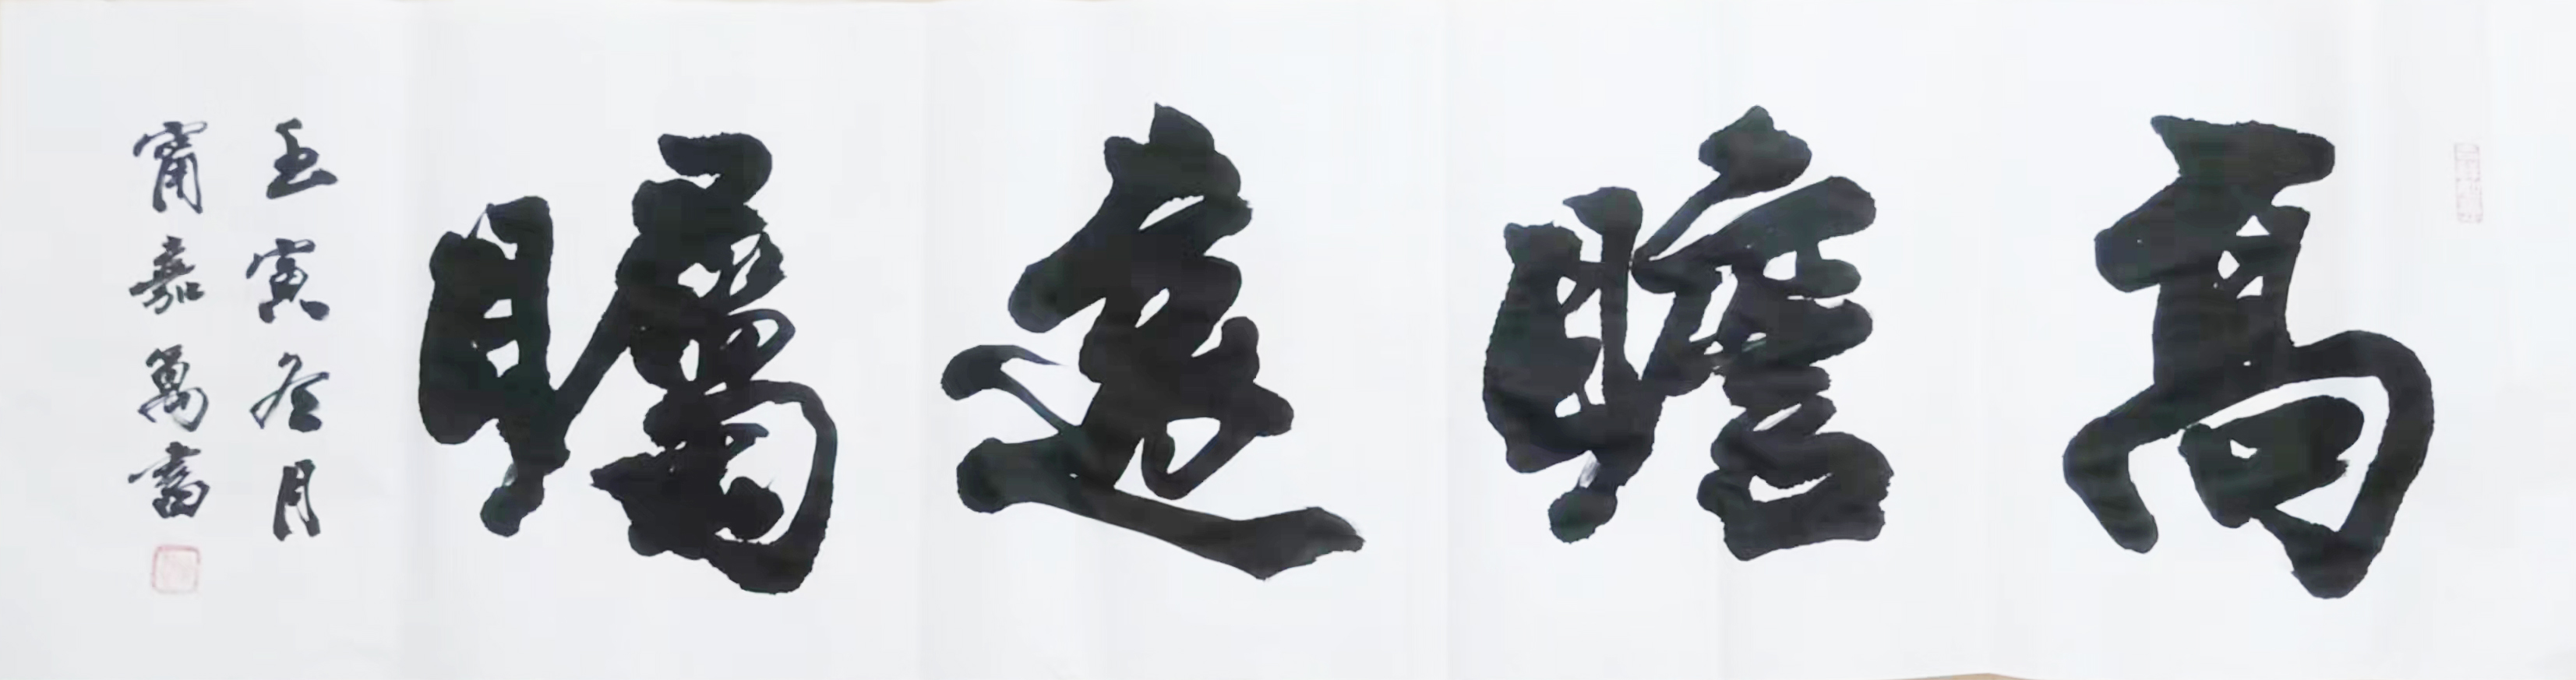 高瞻遠矚
壬寅冬月
甯嘉萬書